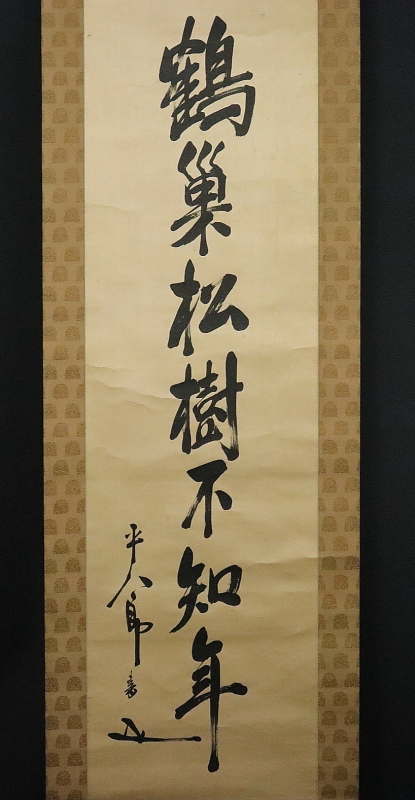 鶴巣松樹不知年
平八郎書